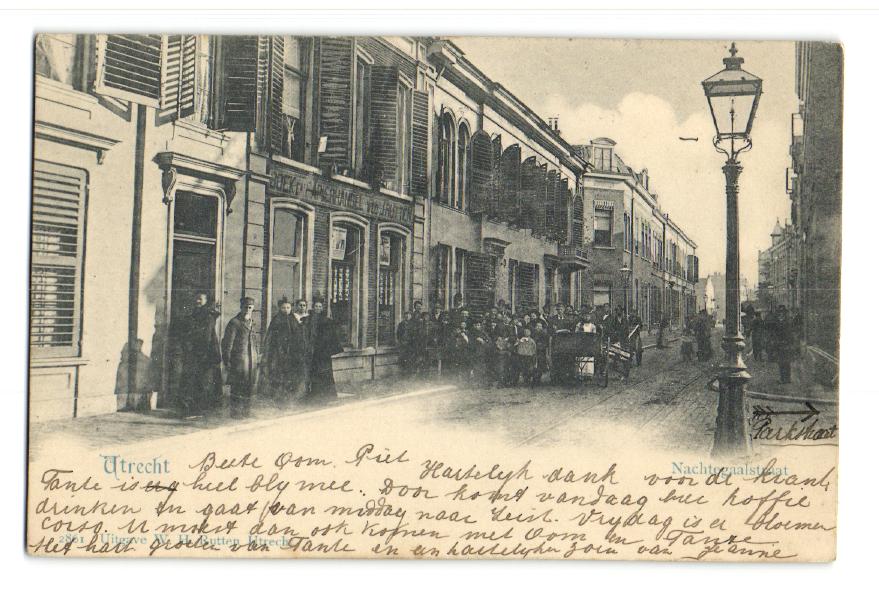 BOEK- PAPIERHANDEL W.H. RUTTEN
Parkstraat
Utrecht
Nachtegaalstraat
Beste Oom Piet
Hartelyk dank voor de krant,
Tante is er heel bly mee. Door komt vandaag hier koffie
drinken en gaat van middag naar Zeist. Vrydag is er bloemen
corso. U moest dan ook komen met Oom en Tante
2861 Uitgave W. H. Rutten Utrecht
Het hart groeten van Tante en een hartelyke zoen van Jeanne